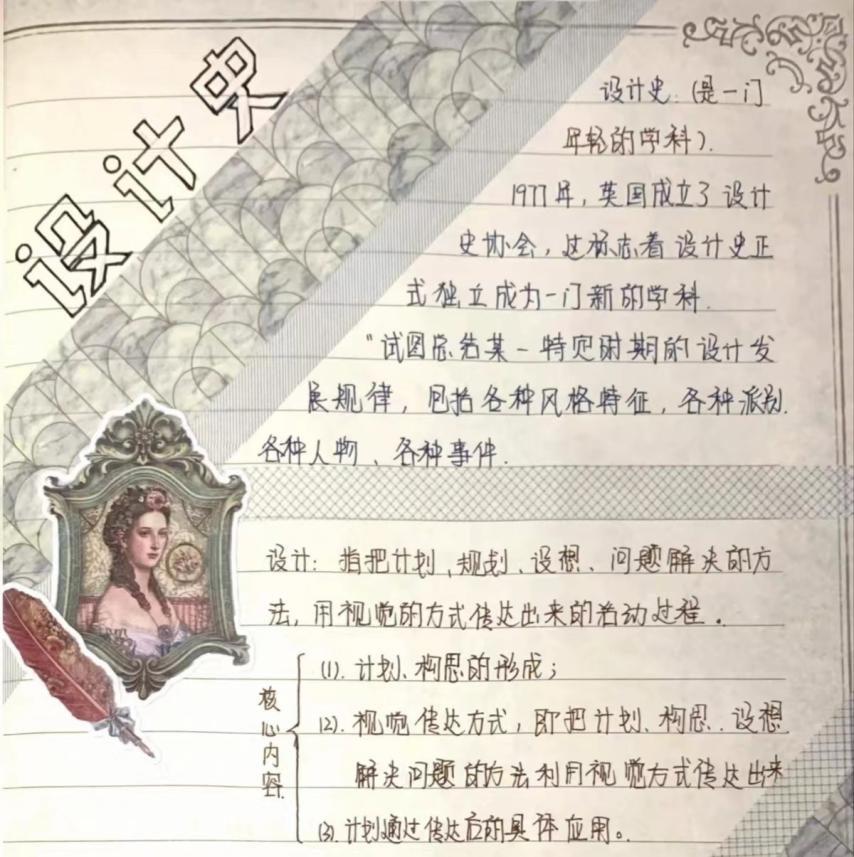 设计史
设计史：(是一门
年轻的学科).
1977年，英国成立了设计
史协会，这标志着设计史正
式独立成为一门新的学科.
"试图总结某一特定时期的设计发
展规律，包括各种风格特征，各种派别.
各种人物、各种事件.
设计：指把计划、规划、设想、问题解决的方
法，用视觉的方式传达出来的活动过程。
核心内容
(1). 计划、构思的形成；
(2). 视觉传达方式，即把计划、构思、设想
解决问题的方法利用视觉方式传达出来
(3). 计划通过传达后的具体应用。